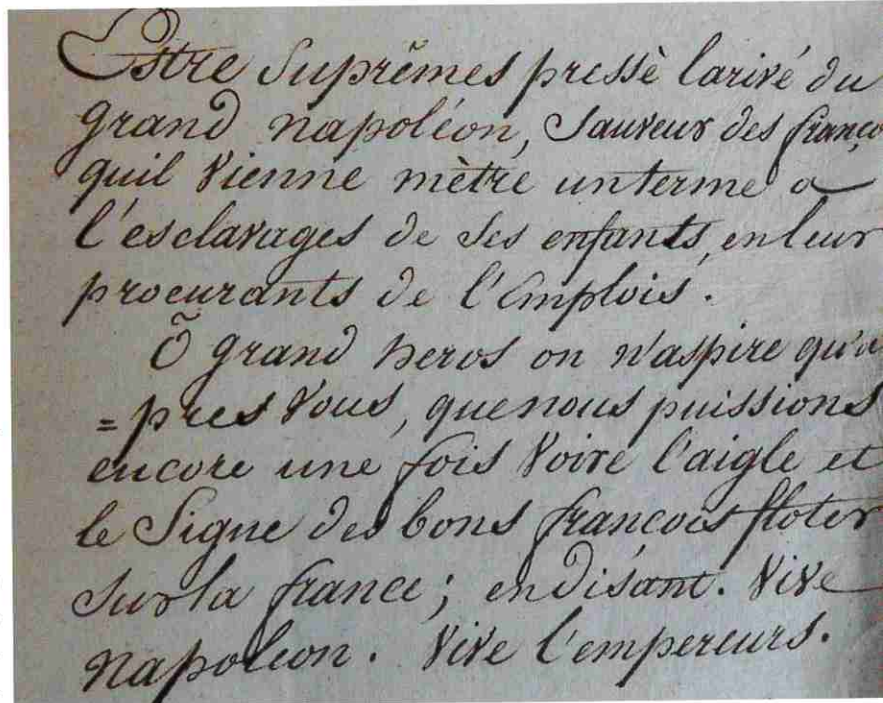 Estre Suprêmes pressè larivé du
grand napoléon, Sauveur des franço
quil vienne mètre unterme a
l'esclavages de ses enfants, enleur
procurants de l'Emplois.
Õ grand heros on n'aspire qu'a
=pres vous, quenous puissions
encore une fois voire l'aigle et
le Signe des bons francois floter
sur la france; endisant. vive
napoleon. vive l'empereurs.